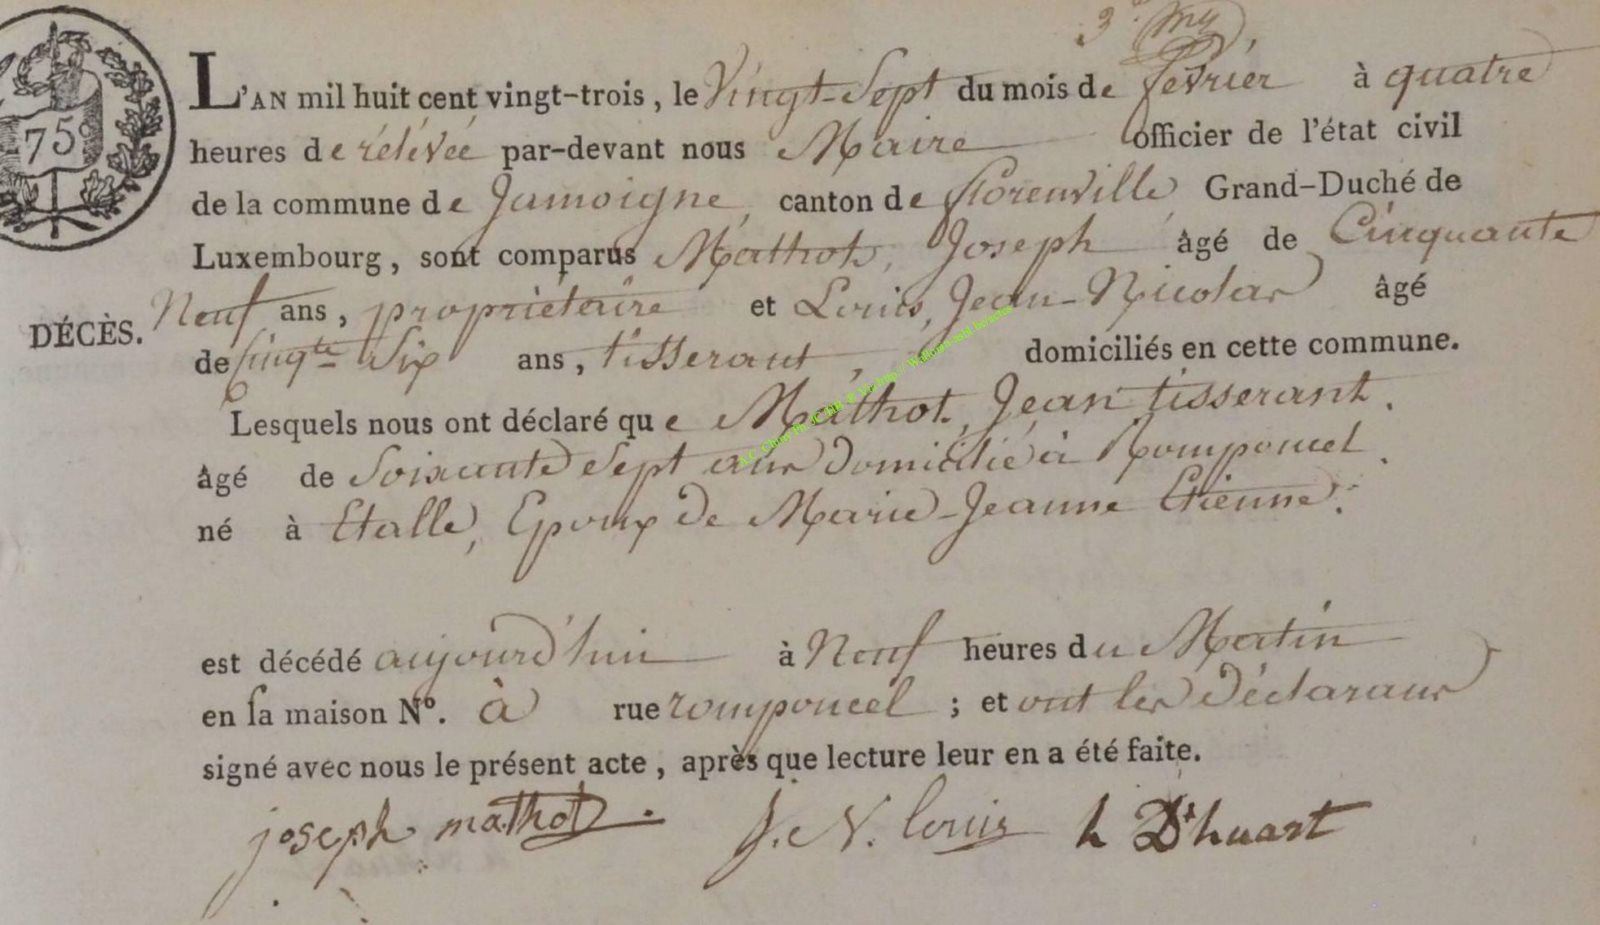 3e my
75c
L'AN mil huit cent vingt-trois, le Vingt-Sept du mois de fevrier à quatre
heures de rélévée par-devant nous Maire officier de l'état civil
de la commune de Jamoigne, canton de florenville, Grand-Duché de
Luxembourg, sont comparus Mathot, Joseph âgé de Cinquante
Neuf ans, propriétaire et Louis, Jean-Nicolas âgé
DÉCÈS.
de Cinqte Six ans, tisserant, domiciliés en cette commune.
Lesquels nous ont déclaré que Mathot, Jean tisserant.
âgé de Soixante Sept ans domicilié à Romponcel.
né à Etalle, Epoux de Marie-Jeanne Etienne.
est décédé aujourd'hui à Neuf heures du Matin
en sa maison No. à rue romponcel; et ont les déclarans
signé avec nous le présent acte, après que lecture leur en a été faite.
joseph mathot. J. N. louis h Dthuart